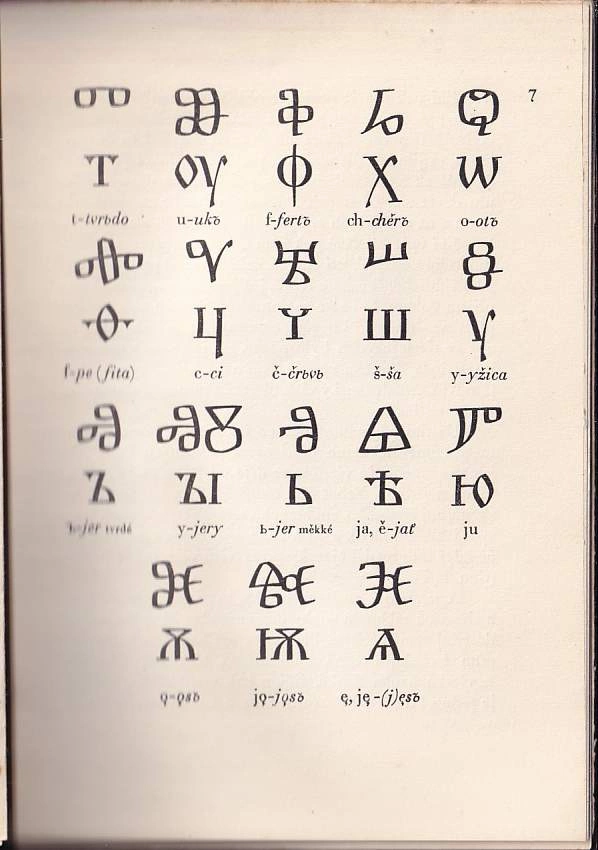 Ⱅ Ⱆ Ⱇ Ⱈ Ⱉ 7
Т ОУ Ф Х Ѡ
t-tvrьdo u-ukъ f-fertъ ch-chěrъ o-otъ
Ⱚ Ⱌ Ⱍ Ⱎ Ⱛ
Ѳ Ц Ч Ш Ѵ
f-pe (fita) c-ci č-črьvь š-ša y-yžica
Ⱏ ⰟⰋ Ⱐ Ⱑ Ⱓ
Ъ ЪІ Ь Ѣ Ю
ъ-jer tvrdé y-jery ь-jer měkké ja, ě-jať ju
Ⱘ Ⱙ Ⱗ
Ѫ Ѭ Ѧ
ǫ-ǫsъ jǫ-jǫsъ ę, ję-(j)ęsъ